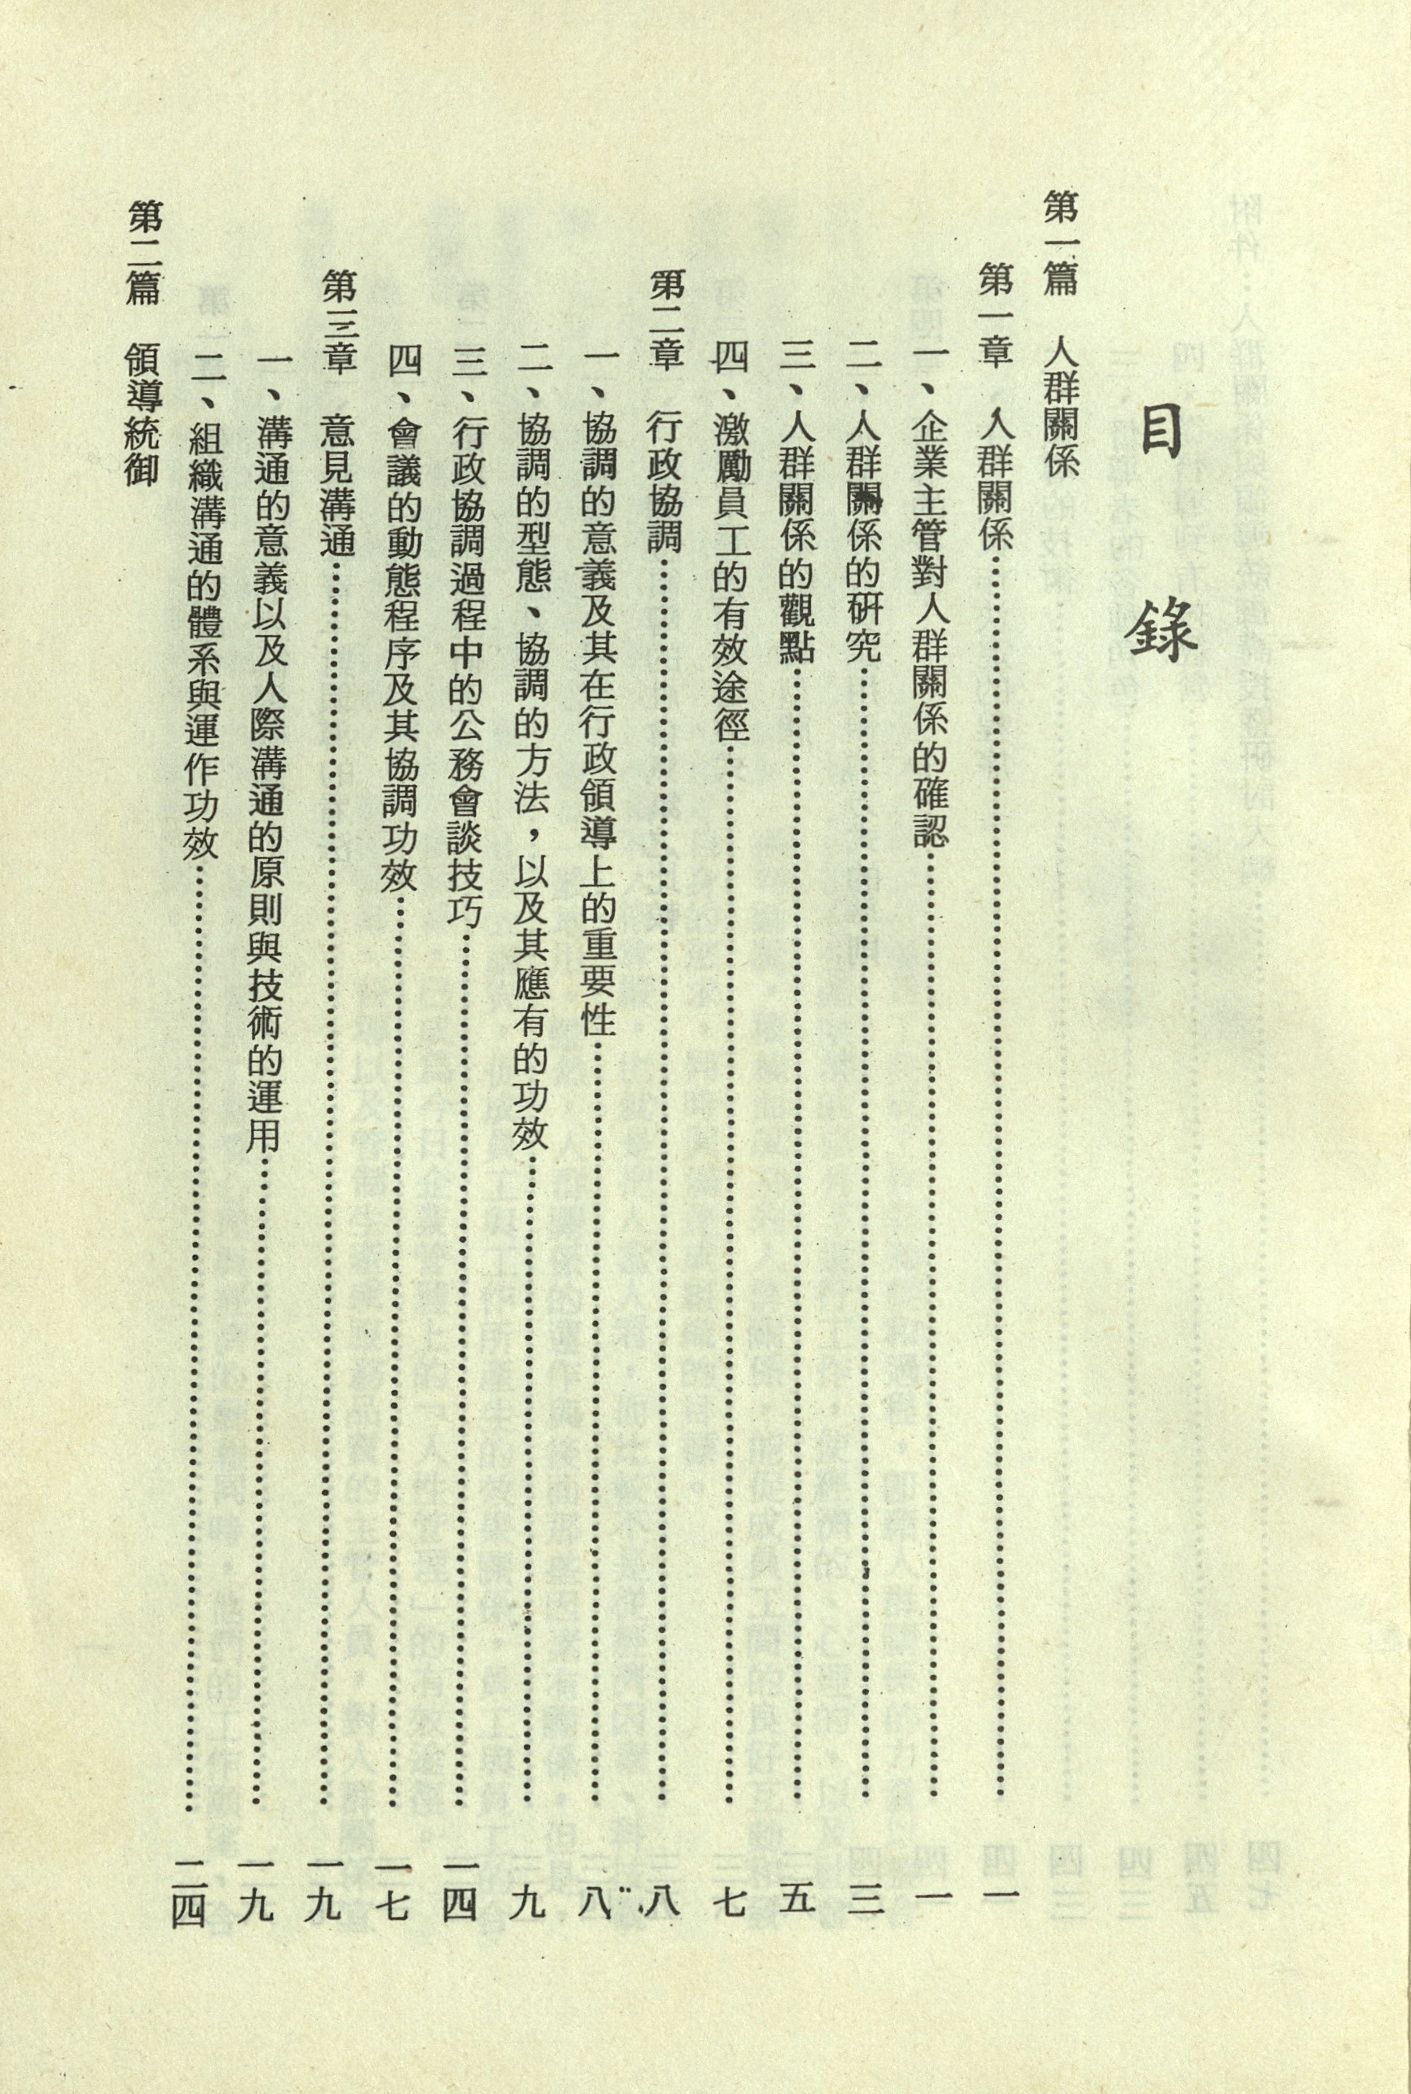 目錄
第一篇　人群關係
第一章　人群關係……一
一、企業主管對人群關係的確認……一
二、人群關係的研究……三
三、人群關係的觀點……五
四、激勵員工的有效途徑……七
第二章　行政協調……八
一、協調的意義及其在行政領導上的重要性……八
二、協調的型態、協調的方法，以及其應有的功效……九
三、行政協調過程中的公務會談技巧……一四
四、會議的動態程序及其協調功效……一七
第三章　意見溝通……一九
一、溝通的意義以及人際溝通的原則與技術的運用……一九
二、組織溝通的體系與運作功效……二四
第二篇　領導統御